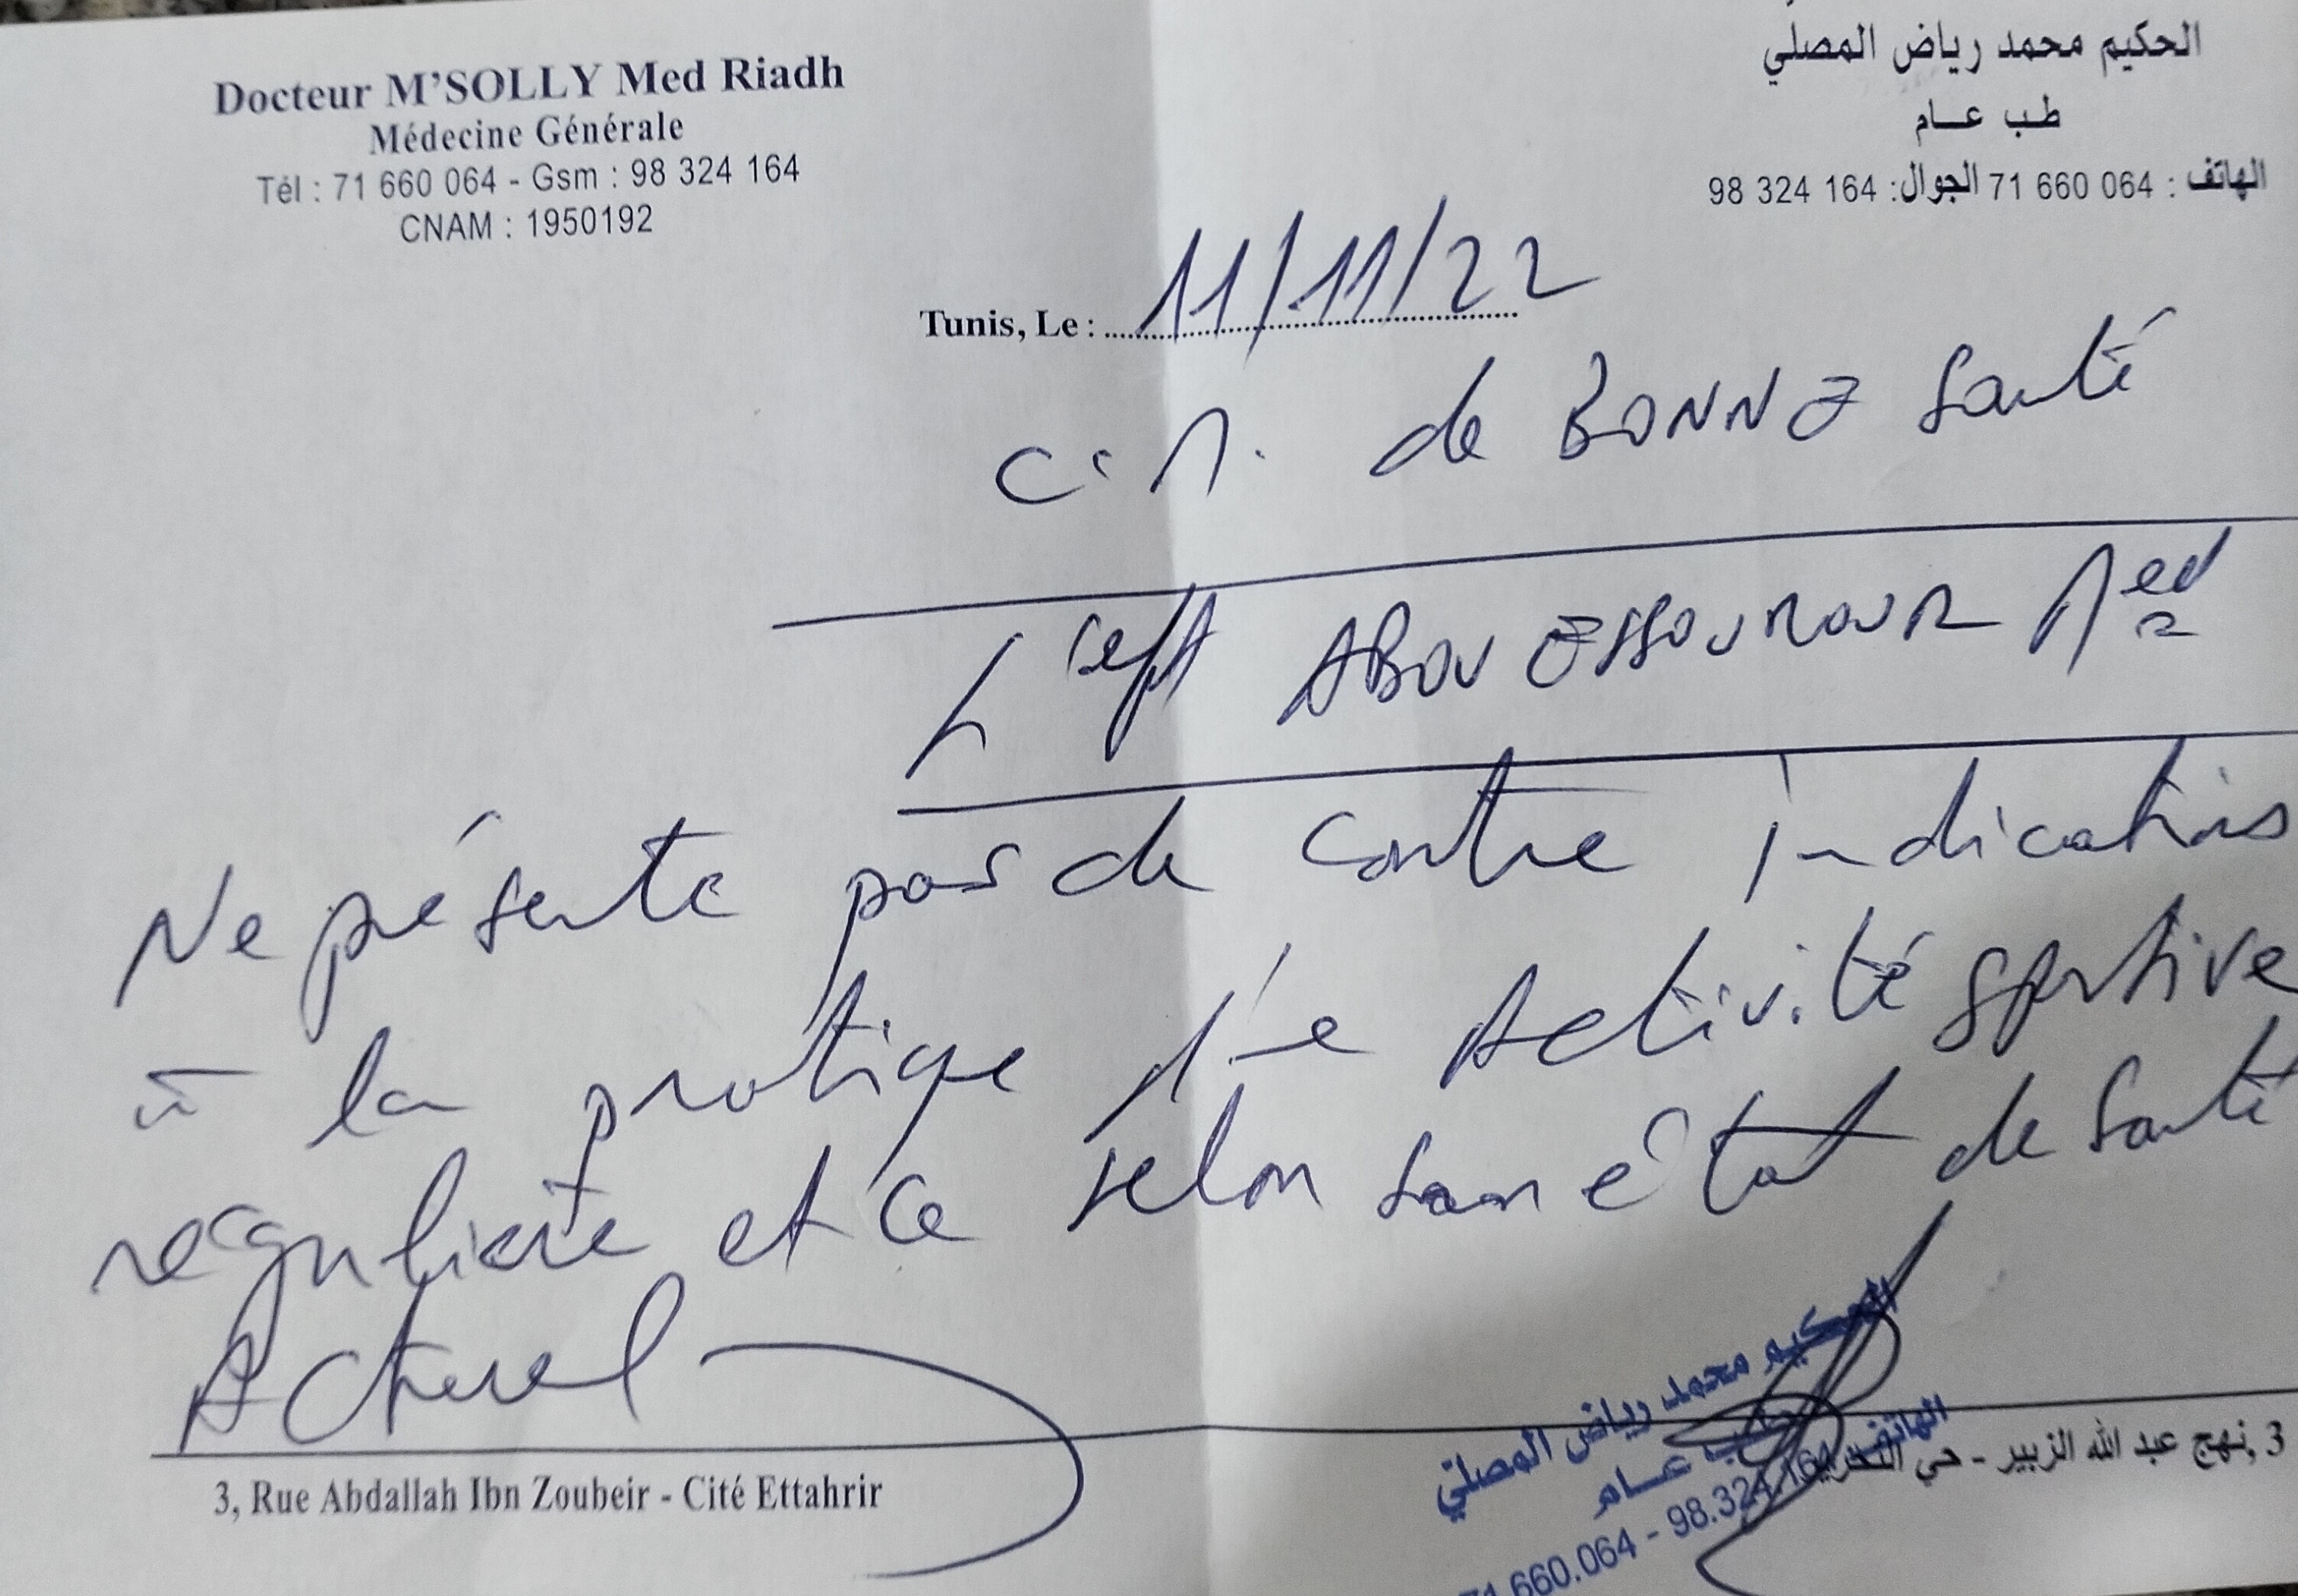 Docteur M'SOLLY Med Riadh
Médecine Générale
Tél : 71 660 064 - Gsm : 98 324 164
CNAM : 1950192
الحكيم محمد رياض المصلي
طب عام
الهاتف : 71 660 064 الجوال: 98 324 164
Tunis, Le : 11/11/22
C.M. de BONNE Santé
ABOU ESSOUROUR Med
Ne présente pas de contre indications
à la pratique d'1e Activité sportive
régulière et ce selon son état de santé
Actuel
الحكيم محمد رياض المصلي
طب عام
الهاتف 71.660.064 - 98.324.164
3, Rue Abdallah Ibn Zoubeir - Cité Ettahrir
3, نهج عبد الله الزبير - حي التحرير